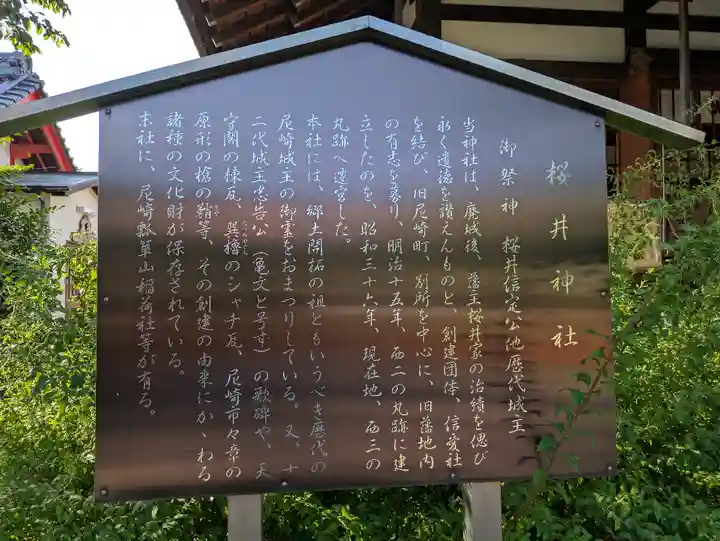 桜井神社
御祭神 桜井信定公他歴代城主
当神社は、廃城後、藩主桜井家の治績を偲び
永く遺徳を讃えんものと、創建団体、信愛社
を結び、旧尼崎町、別所を中心に、旧藩地内
の有志を募り、明治十五年、西二の丸跡に建
立したのを、昭和三十六年、現在地、西三の
丸跡へ遷宮した。
本社には、郷土開拓の祖ともいうべき歴代の
尼崎城主の御霊をおまつりしている。又、十
二代城主忠告公（亀文と号す）の歌碑や、天
守閣の棟瓦、巽櫓のシャチ瓦、尼崎市々章の
原形の槍の鞘等、その創建の由来にかゝわる
諸種の文化財が保存されている。
末社に、尼崎瓢箪山稲荷社等が有る。